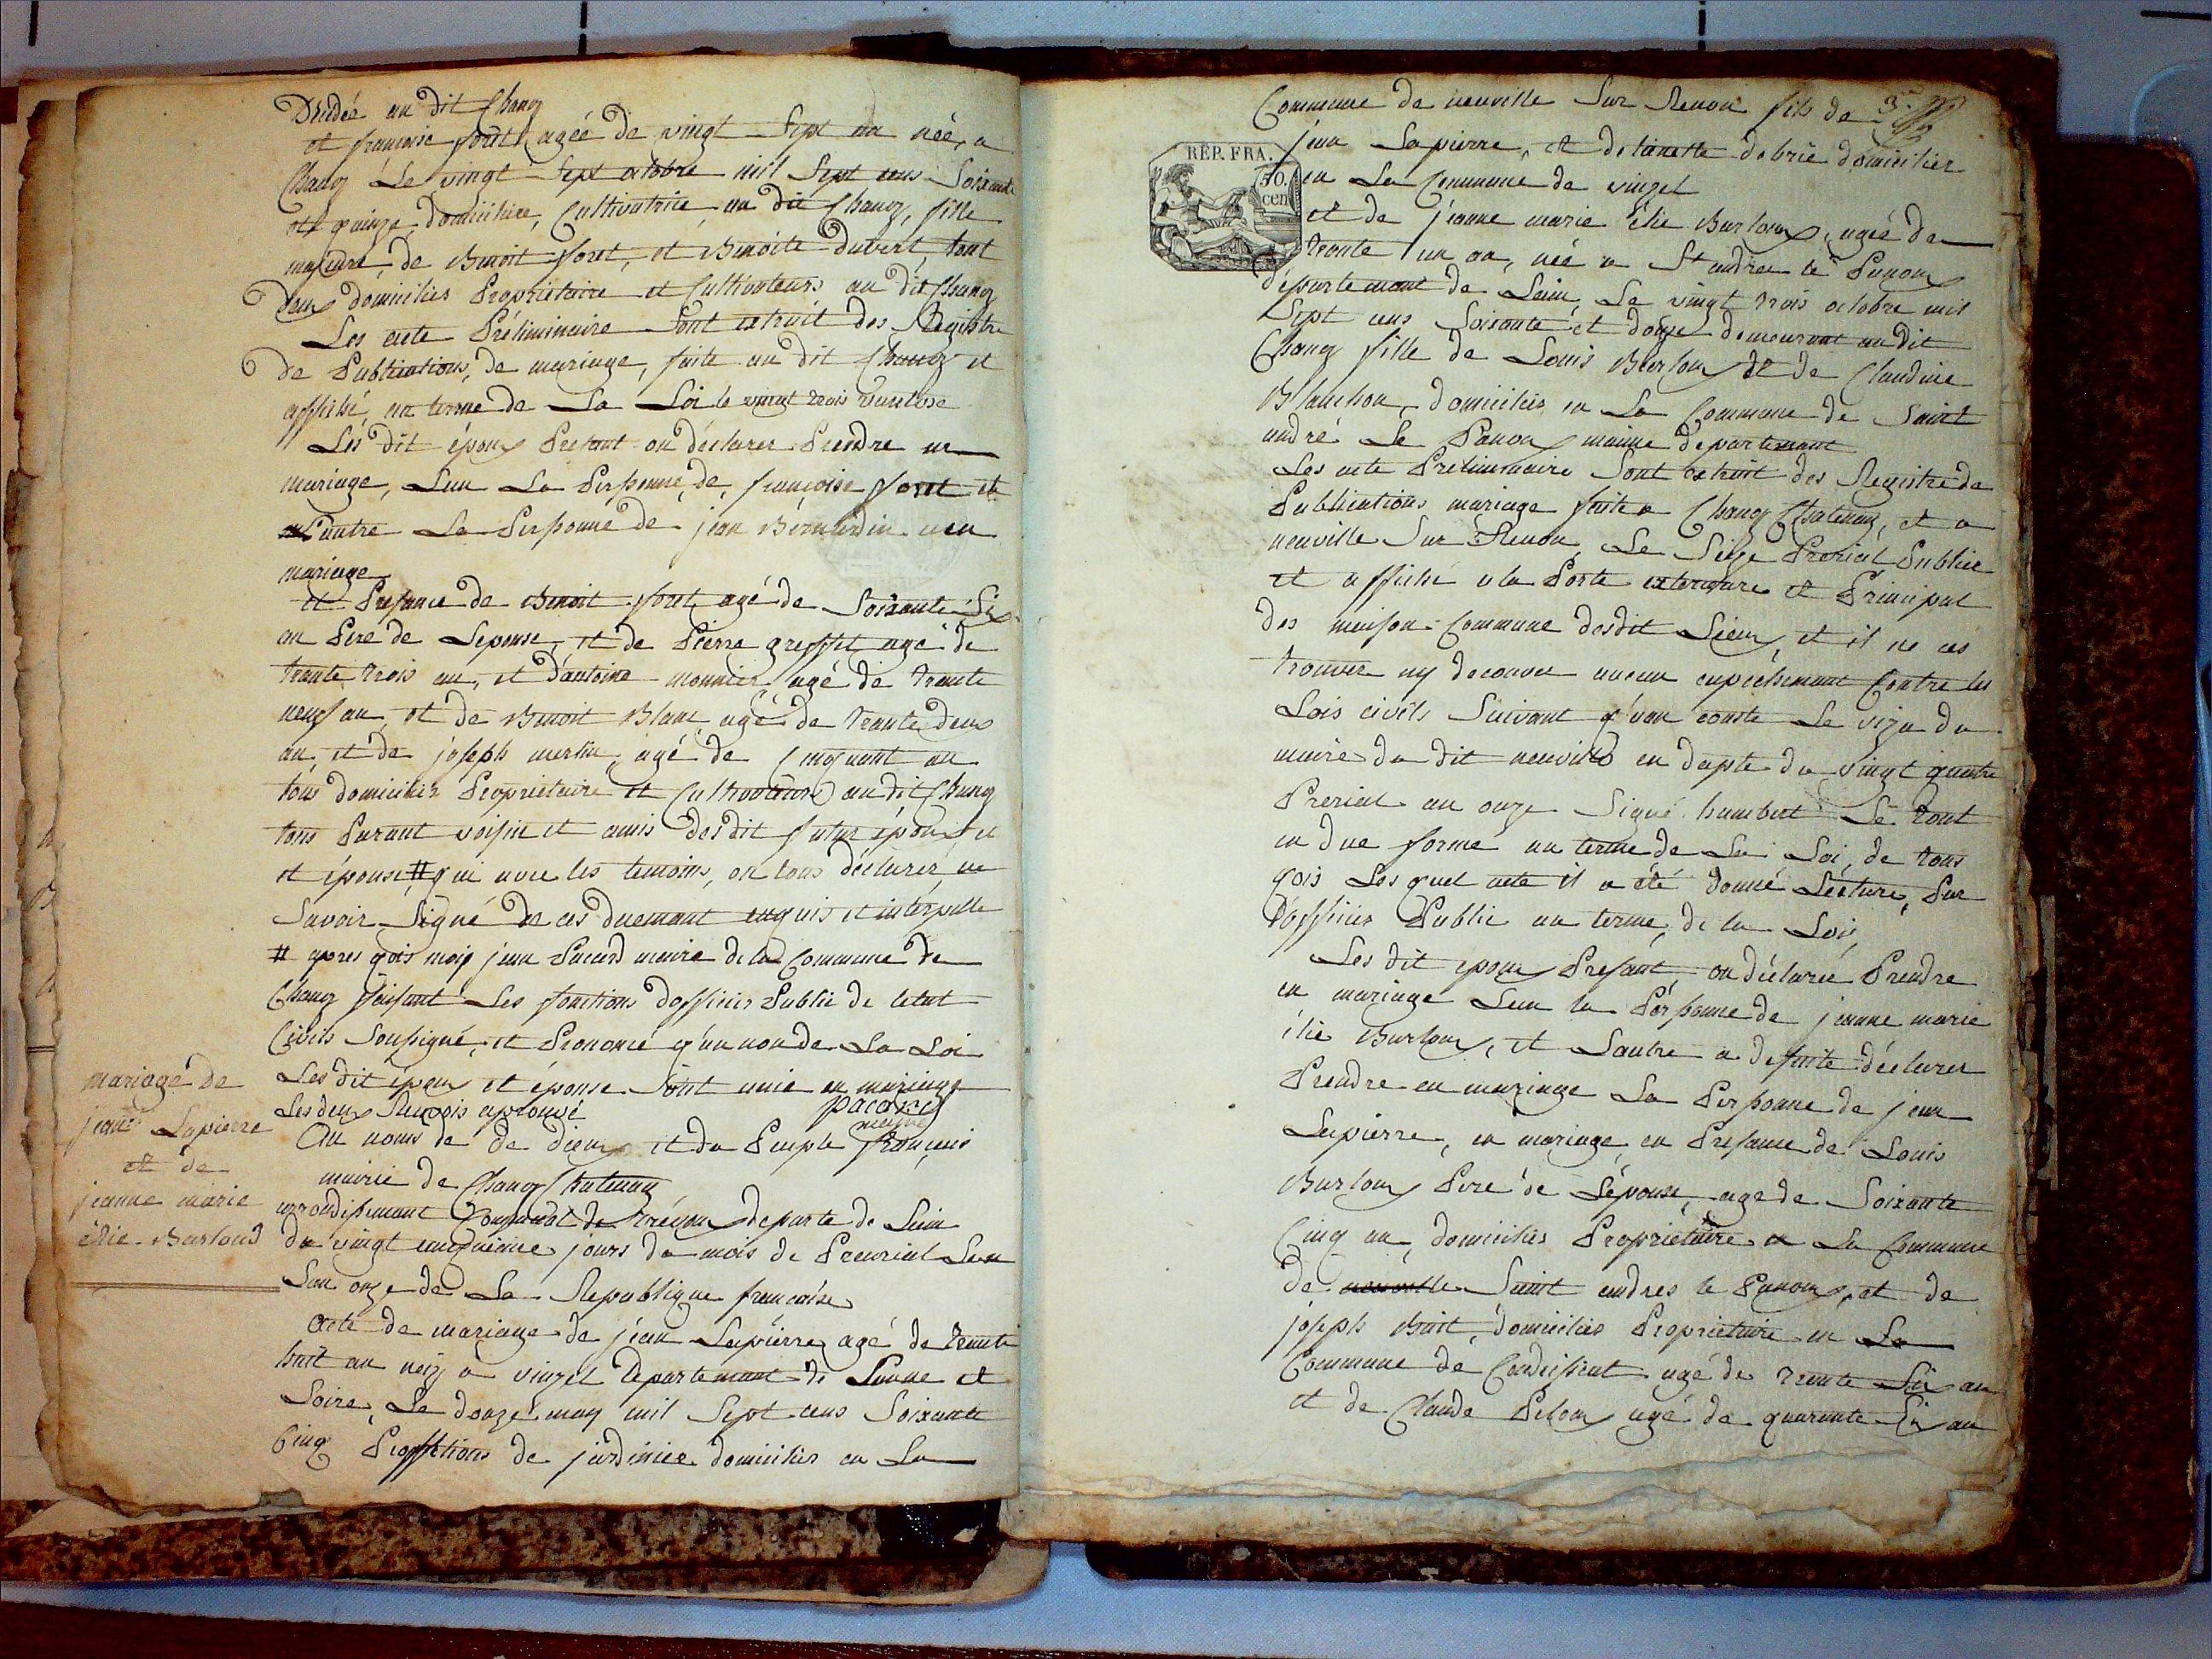 Décédée au dit Chanoz
et françoise foret agée de vingt Sept an née, a
Chanoz Le vingt Sept octobre mil Sept cens Soixante
et quinze, domiciliée, Cultivatrice, au dit Chanoz, fille
majeure, de Benoit foret, et Benoite dubert, tout
deux domiciliés Propriétaire et Cultivateurs au dit Chanoz
Les acte Préliminaire Sont extrait des Registre
de Publications, de mariage, faite au dit Chanoz et
affiché, au terme de La Loi le vingt trois vantose
Les dit époux Présant on déclarer Prendre en
mariage, Lun La Personne, de, françoise foret et
Lautre La Personne de jean Bernardin en
mariage
et Presance de Benoit foret, agé de Soixante Six
an Pere de Lepouse, et de Pierre greffet agé de
trante trois an, et d'antoine monnier, agé de trante
neuf an, et de Benoit Blanc, agé de trante deux
an, et de joseph merlin, agé de Cinquant an
tous domiciliés Propriétaire et Cultivateurs au dit Chanoz
tous Parant voisin et amis des dit futur époux et
et épouse # qui avec les temoins, on tous déclarer, ne
Savoir Signé de ces duemant enquis et interpelle
# apres qois moij jean Pacard maire de la Commune de
Chanoz faisant Les fonctions dofficier Public de letat
Civils Soussigné, et Prononcé q'au non de La Loi
Les dit époux et épouse Sont unie en mariage
Les deux Renvois aprouvé
pacard
maire
mariage de
jean Lapierre
et de
jeanne marie
élie Burloud
Au noms de de dieux et du Peuple français
mairie de Chanoz Chatenay
arrondissement Communal de trévoux departe de Lain
du vingt cinquieme jours du mois de Preurial Lan
Lan onze de La Republique française
Acte de mariage de jean Lapierre agé de trante
huit an neiz a vinzel Departemant de Saone et
Loire, Le douze may mil Sept cens Soixante
Cinq Proffetions de jardinier domicilier en La
3e
Commune de neuville Sur Renon fils de
jean Lapierre, et de toinette debrie domicilier
en La Commune de vinzel
REP. FRA.
50.
cen
et de jeanne marie élie Burloux, agée de
trante un an, née a St andrez le Panoux
département de Lain, Le vingt trois octobre mil
Sept cens Soixante et douze demeurant au dit
Chanoz fille de Louis Burloux et de Claudine
Blanchon, domiciliés en La Commune de Saint
andré Le Panoux, maime departemant
Les acte Préliminaire Sont extrait des Registre de
Publications mariage faite a Chanoz Chatenay, et a
neuville Sur Renon, Le Sieze Prerial Publié
et affiché a la Porte exterieure et Principal
des maison Commune desdit Lieux, et il ne ces
trouver ny decouver aucun empéchemant Contre les
Lois civils Suivant q'uan conste Le viza du
maire du dit neuville en dapte du vingt quatre
Prerial an onze Signé humbert Le tout
en due forme au terme de La Loi, de tous
qois Les quel acte il a été donné Lecture, Par
L'officier Public au terme, de la Loi,
Les dit époux Presant, on déclarée Prendre
en mariage Lun la Personne de jeanne marie
élie Burloux, et Lautre a desuite déclarer
Prendre en mariage La Personne de jean
Lapierre, en mariage, en Presance de Louis
Burloux Pere de Lépouse, age de Soixante
Cinq an, domiciliés Propriétaire en La Commune
de neuville Saint andres le Panoux, et de
joseph domiciliés Propriétaire en La
Commune de Condeissiat agé de trante Six an
et de Claude Peloux agé de quarante Six an